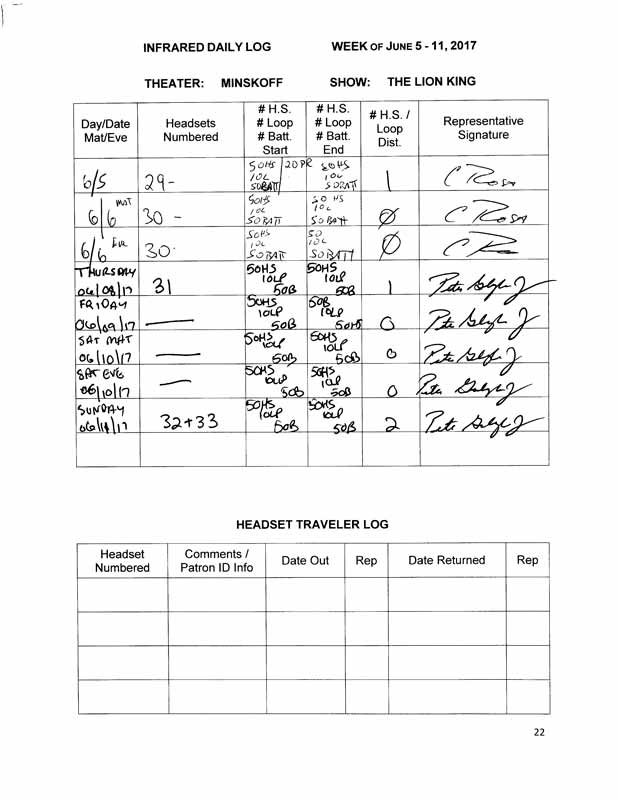 INFRARED DAILY LOG WEEK OF JUNE 5 - 11, 2017
THEATER: MINSKOFF SHOW: THE LION KING
Day/Date Mat/Eve Headsets Numbered # H.S. # Loop # Batt. Start # H.S. # Loop # Batt. End # H.S. / Loop Dist. Representative Signature
6/5 29- 50HS 20PR 10L 50BATT 50HS 10L 50BATT 1 C Rosa
6/6 MAT 30 - 50HS 10L 50BATT 50 HS 10L 50BATT Ø C Rosa
6/6 EVE 30- 50HS 10L 50BATT 50 10L 50BATT Ø
THURSDAY 06/08/17 31 50HS 10LP 50B 50HS 10LP 50B 1 Pete
FRIDAY 06/09/17 — 50HS 10LP 50B 50B 10LP 50HS 0 Pete
SAT MAT 06/10/17 — 50HS 10LP 50B 50HS 10LP 50B 0 Pete
SAT EVE 06/10/17 — 50HS 10LP 50B 50HS 10LP 50B 0 Pete
SUNDAY 06/11/17 32+33 50HS 10LP 50B 50HS 10LP 50B 2 Pete
HEADSET TRAVELER LOG
Headset Numbered Comments / Patron ID Info Date Out Rep Date Returned Rep
22